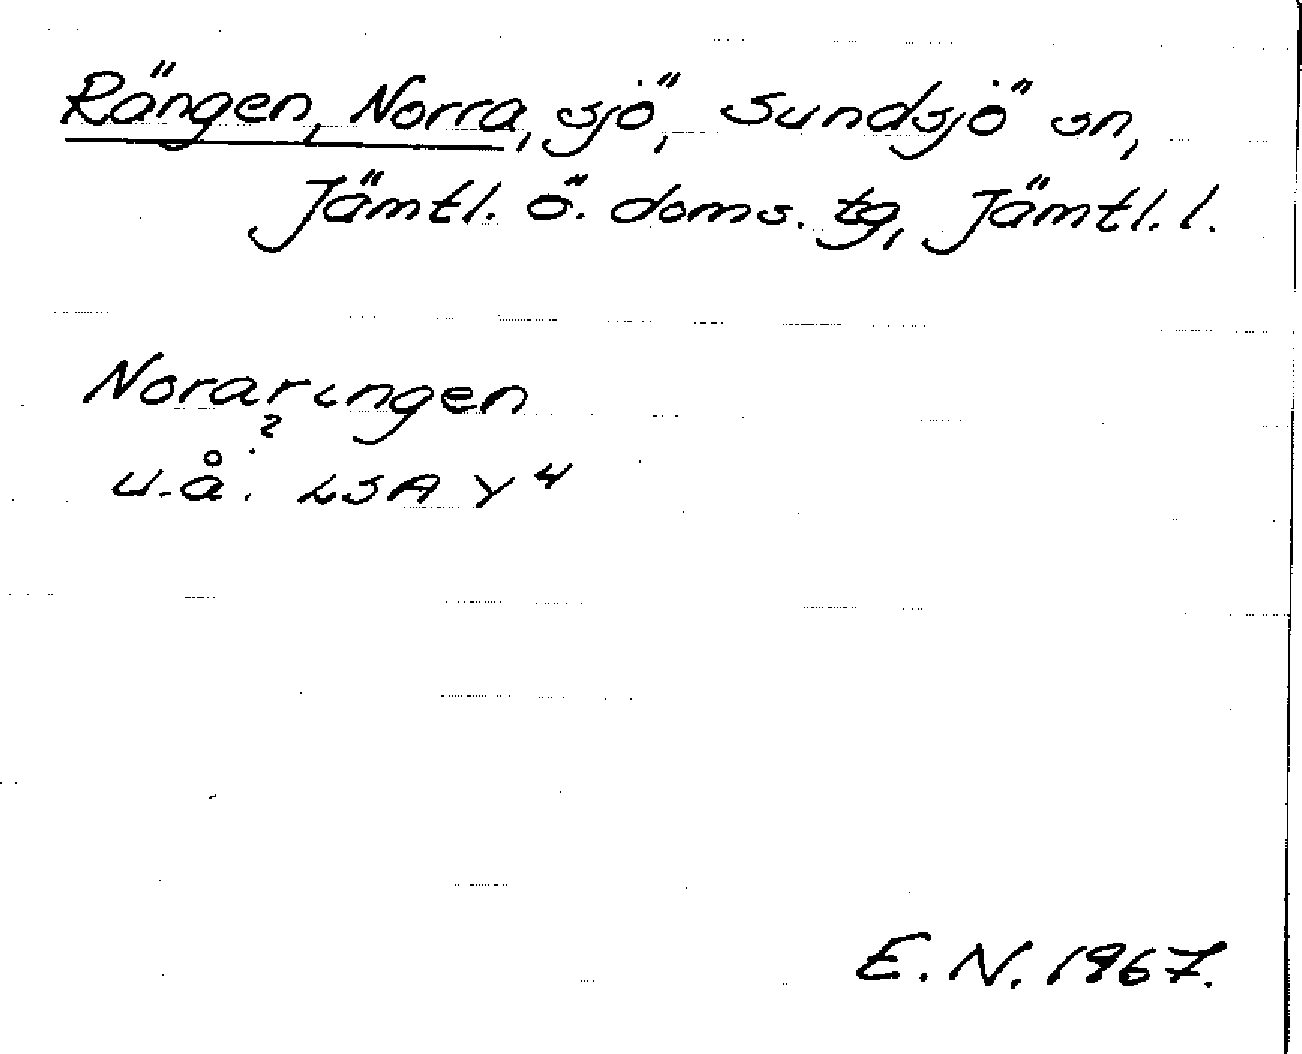 Rängen, Norra, sjö, Sundsjö sn,
Jämtl. ö. doms. tg, Jämtl. l.
Noraringen
?
u.å. LSA Y 4
E. N. 1967.